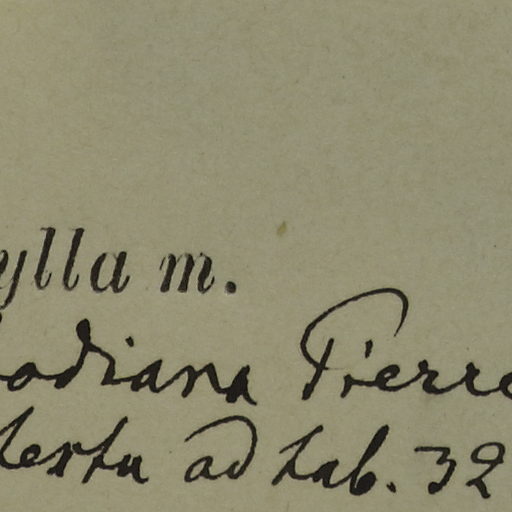 ylla m.
odiana Pierre
textu ad tab. 32